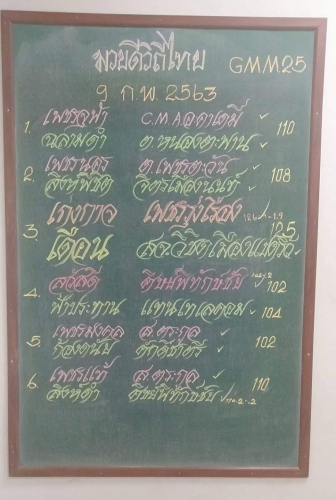 มวยดีวิถีไทย GMM25
9 ก.พ. 2563
1. เพชรจุฬา C.M.A อคาเดมี่ ✓ 110
ฉลามดำ ต.หนองตะพาน ✓
2. เพชรนคร ต.เพชรตะวัน ✓ 108
สิงห์พิชิต จิตรเมืองนนท์ ✓
3. เก่งกาจ เพชรรุ่งเรือง 125
เดือน ส.จ.วิชิตเมืองแปดริ้ว
4. สวัสดี ศิษย์พิทักษ์ชัย 102
ฟ้าประทาน แทนเทเลคอม ✓ 104
5. เพชรมงคล ส.ตระกูล ✓ 102
ก้องดนัย ศักดิ์ชาตรี ✓
6. เพชรแท้ ส.ตระกูล ✓ 110
สิงห์ดำ ศิษย์พิทักษ์ชัย ✓